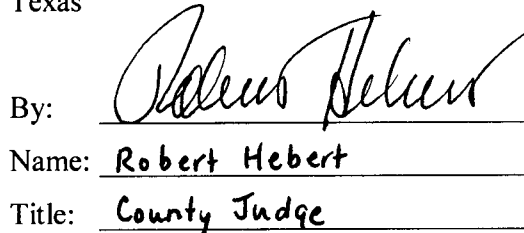 Texas
By: Robert Hebert
Name: Robert Hebert
Title: County Judge